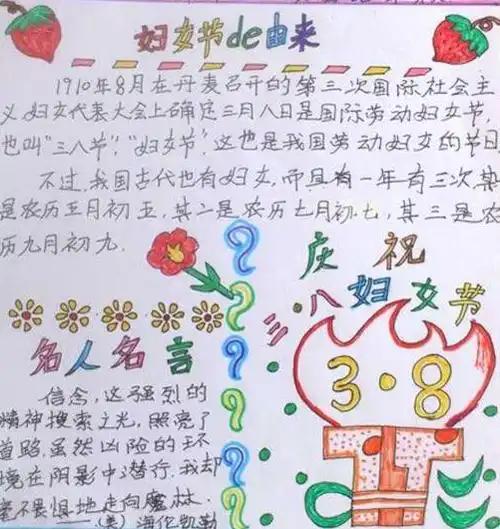 妇女节de由来
1910年8月在丹麦召开的第三次国际社会主
义妇女代表大会上确定三月八日是国际劳动妇女节,
也叫"三八节""妇女节"。这也是我国劳动妇女的节日
不过,我国古代也有妇女,而且有一年有三次,其
是农历三月初五,其二是农历七月初七,其三是农
历九月初九.
庆祝
三·八妇女节
3·8
名人名言
信念,这强烈的
精神搜索之光,照亮了
道路,虽然凶险的环
境在阴影中潜行,我却
毫不畏惧地走向魔林.
——(美)海伦凯勒